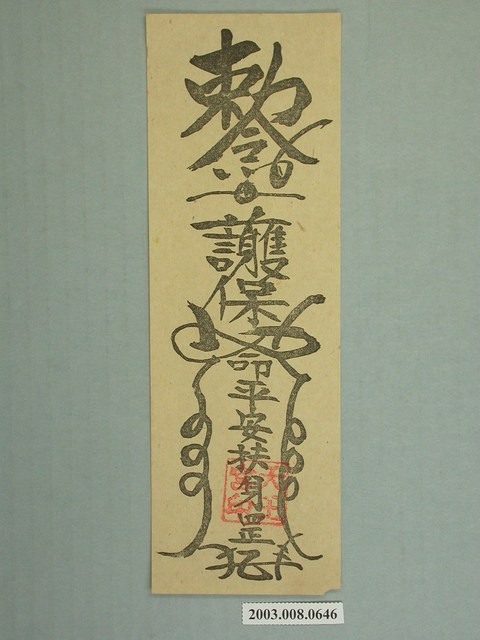 敕令
護
保
命
平
安
扶
身
罡
2003.008.0646